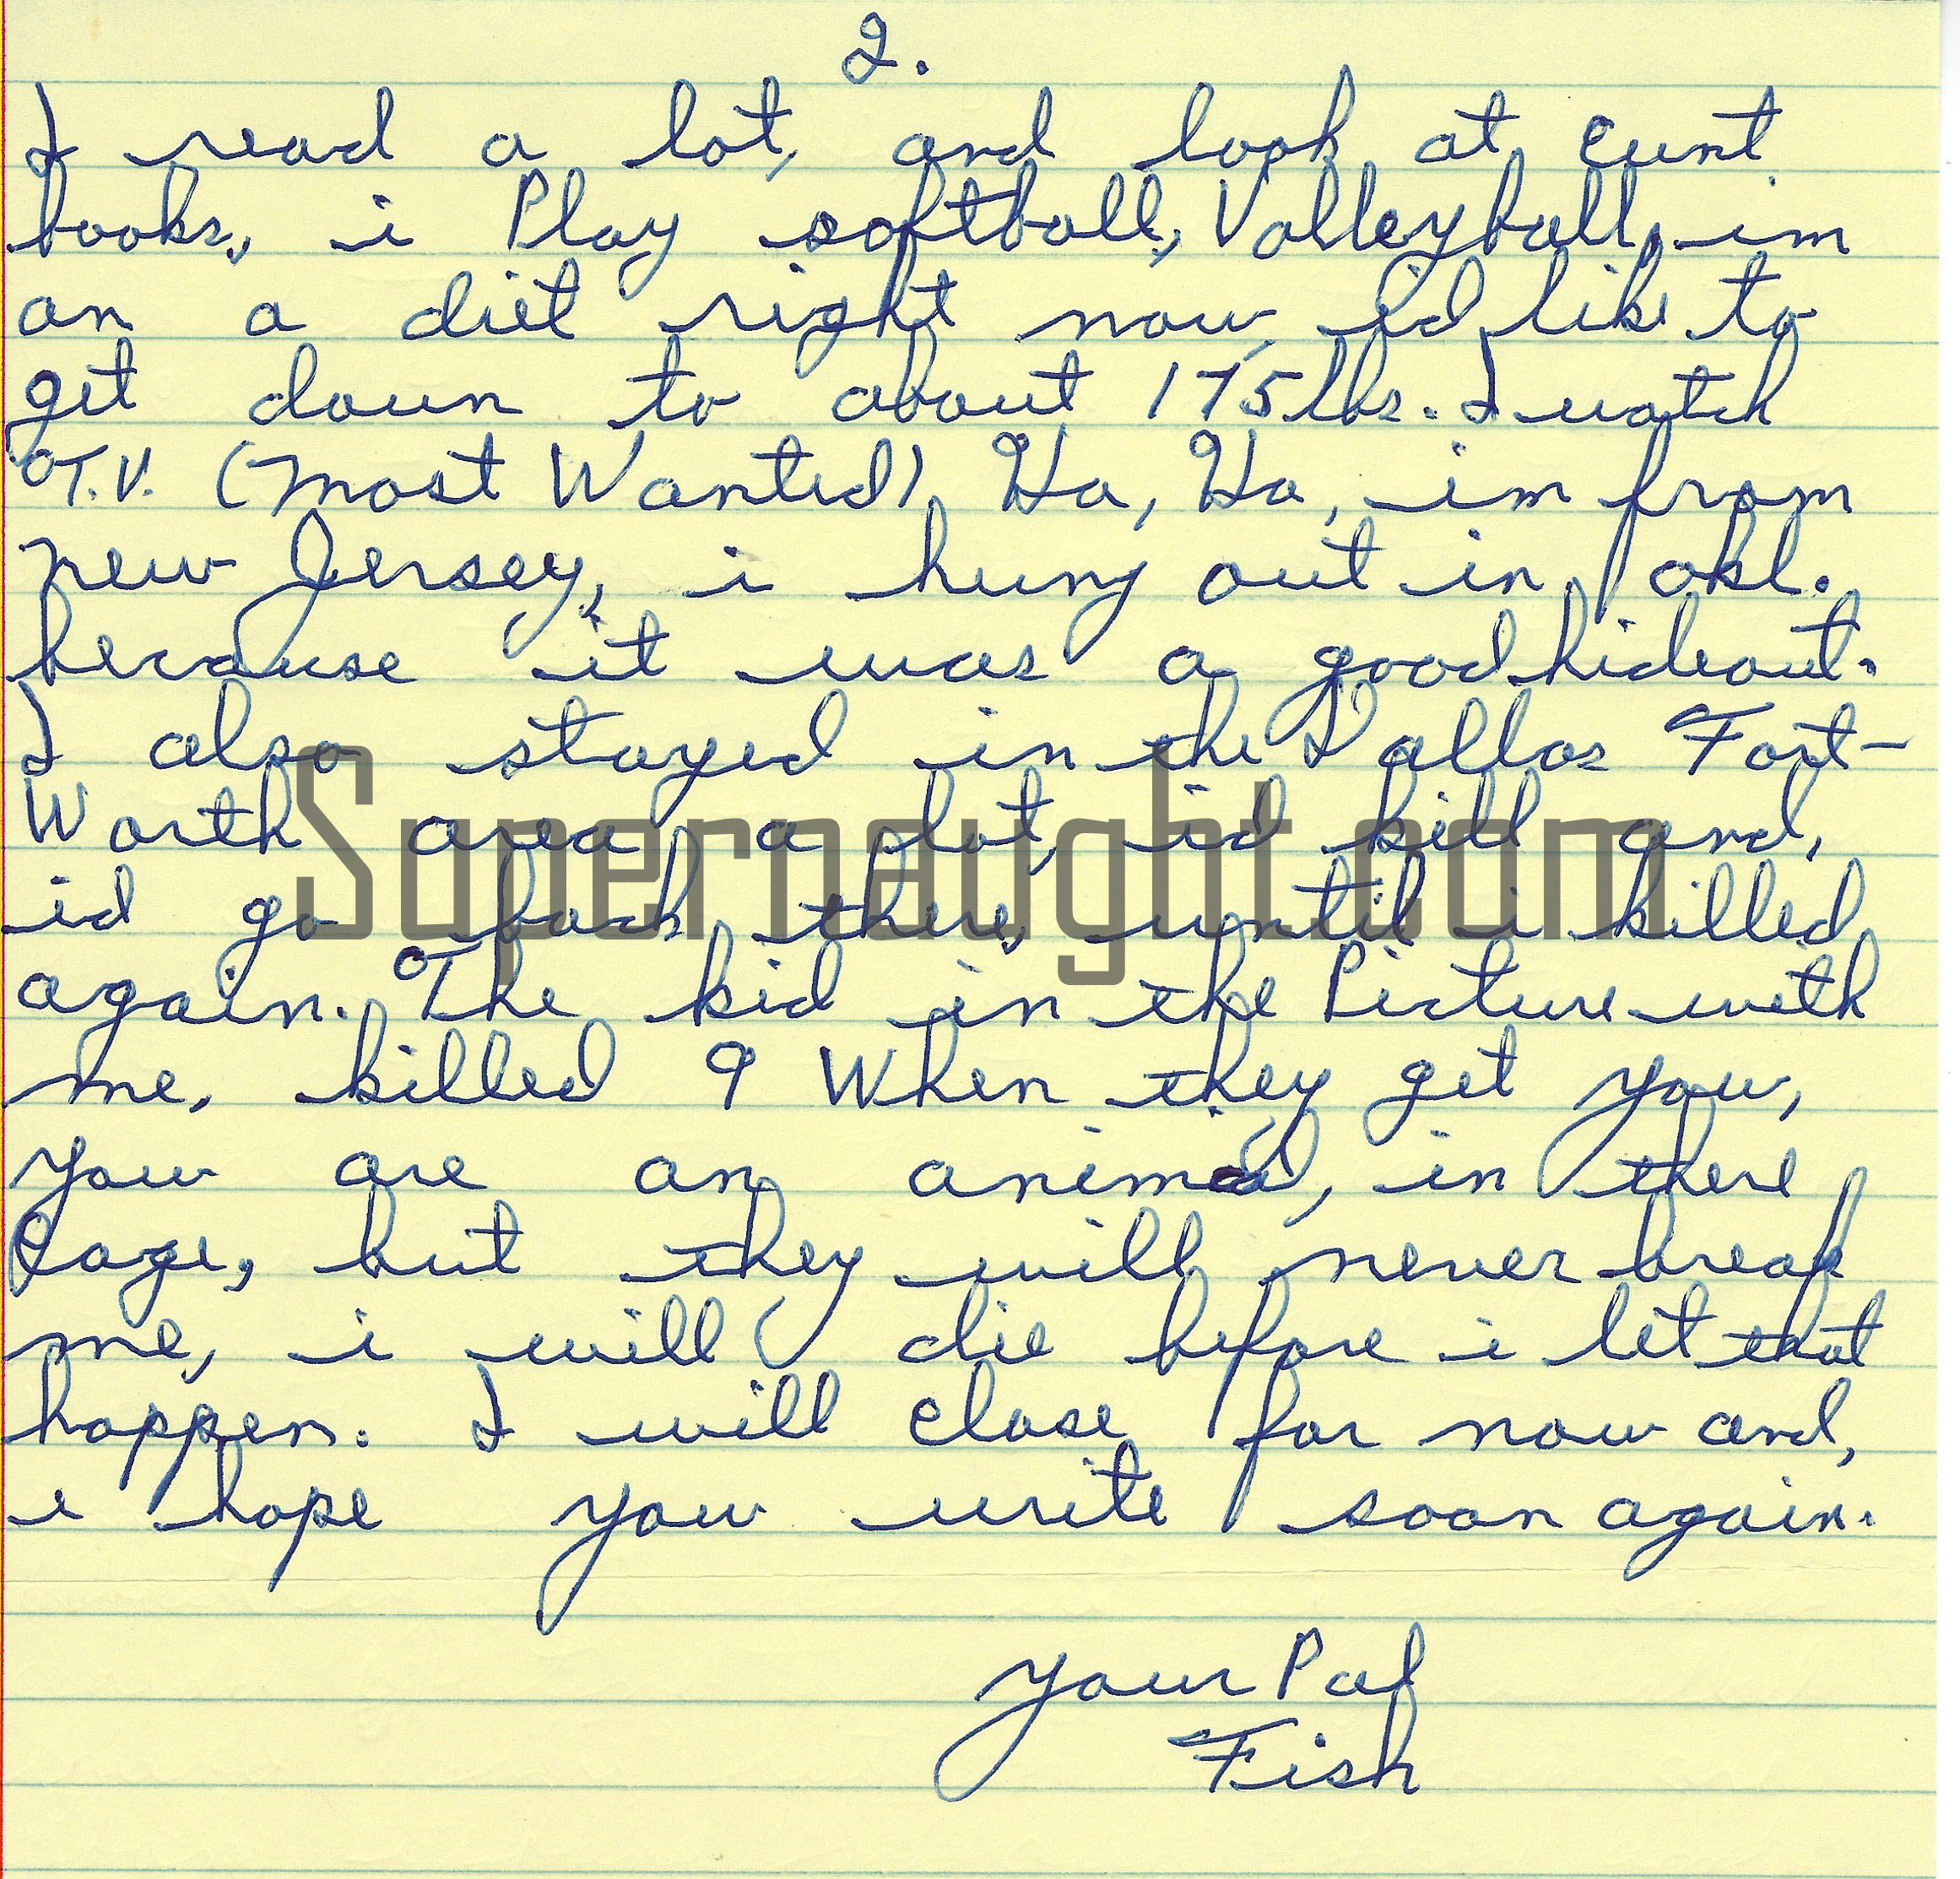 2.
I read a lot, and look at cunt
books, i Play softball, Volleyball, im
on a diet right now, id like to
get down to about 175lbs. I watch
T.V. (Most Wanted) Ha, Ha, im from
new Jersey, i hung out in okl.
because it was a good hideout.
I also stayed in the Dallas Fort-
Worth area a lot, id kill and,
Supernaught.com
id go back there, until i killed
again. The kid in the Picture with
me, killed 9 When they get you,
you are an animal, in there
Cage, but they will never break
me, i will die before i let that
happen. I will close for now and,
i hope you write soon again.
your Pal
Fish